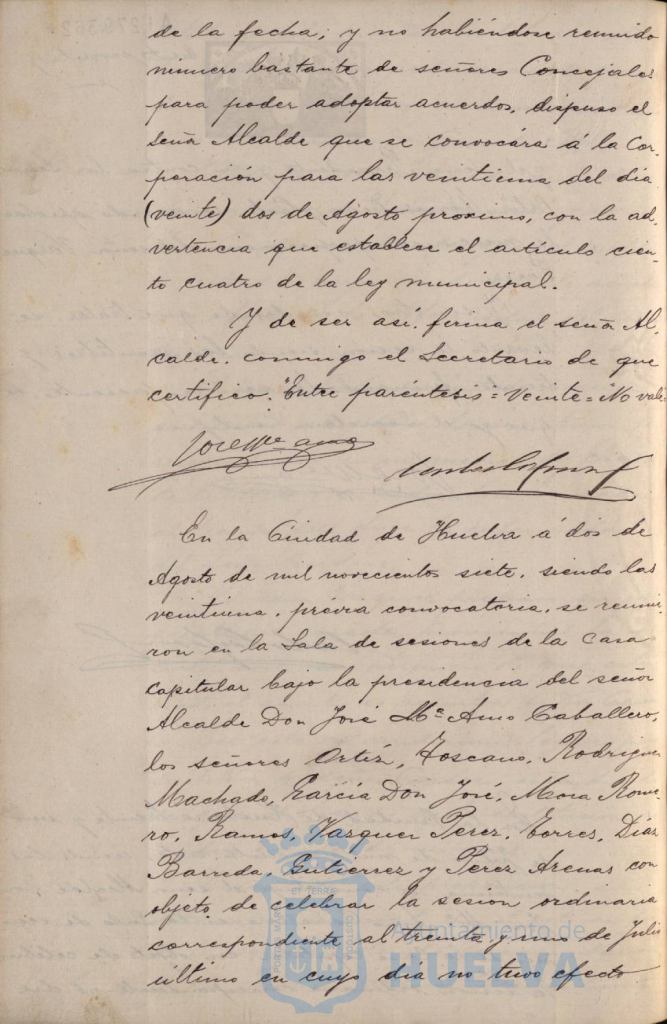 de la fecha; y no habiéndose reunido
número bastante de señores Concejales
para poder adoptar acuerdos, dispuso el
señor Alcalde que se convocára á la Cor-
poración para las veintiuna del día
(veinte) dos de Agosto próximo, con la ad-
vertencia que establece el artículo cien-
to cuatro de la ley municipal.
Y de ser así firma el señor Al-
calde conmigo el Secretario de que
certifico. "Entre paréntesis" = veinte = No vale
En la Ciudad de Huelva á dos de
Agosto de mil novecientos siete, siendo las
veintiuna, prévia convocatoria, se reunie-
ron en la Sala de sesiones de la Casa
capitular bajo la presidencia del señor
Alcalde Don José Mª Amo Caballero,
los señores Ortíz, Toscano, Rodriguez
Machado, García Don José, Mora Rome-
ro, Ramos, Vazquez Perez, Torres, Díaz
Barreda, Gutierrez y Perez Arenas con
objeto de celebrar la sesion ordinaria
correspondiente al treinta y uno de Julio
último en cuyo día no tuvo efecto
Ayuntamiento de
HUELVA